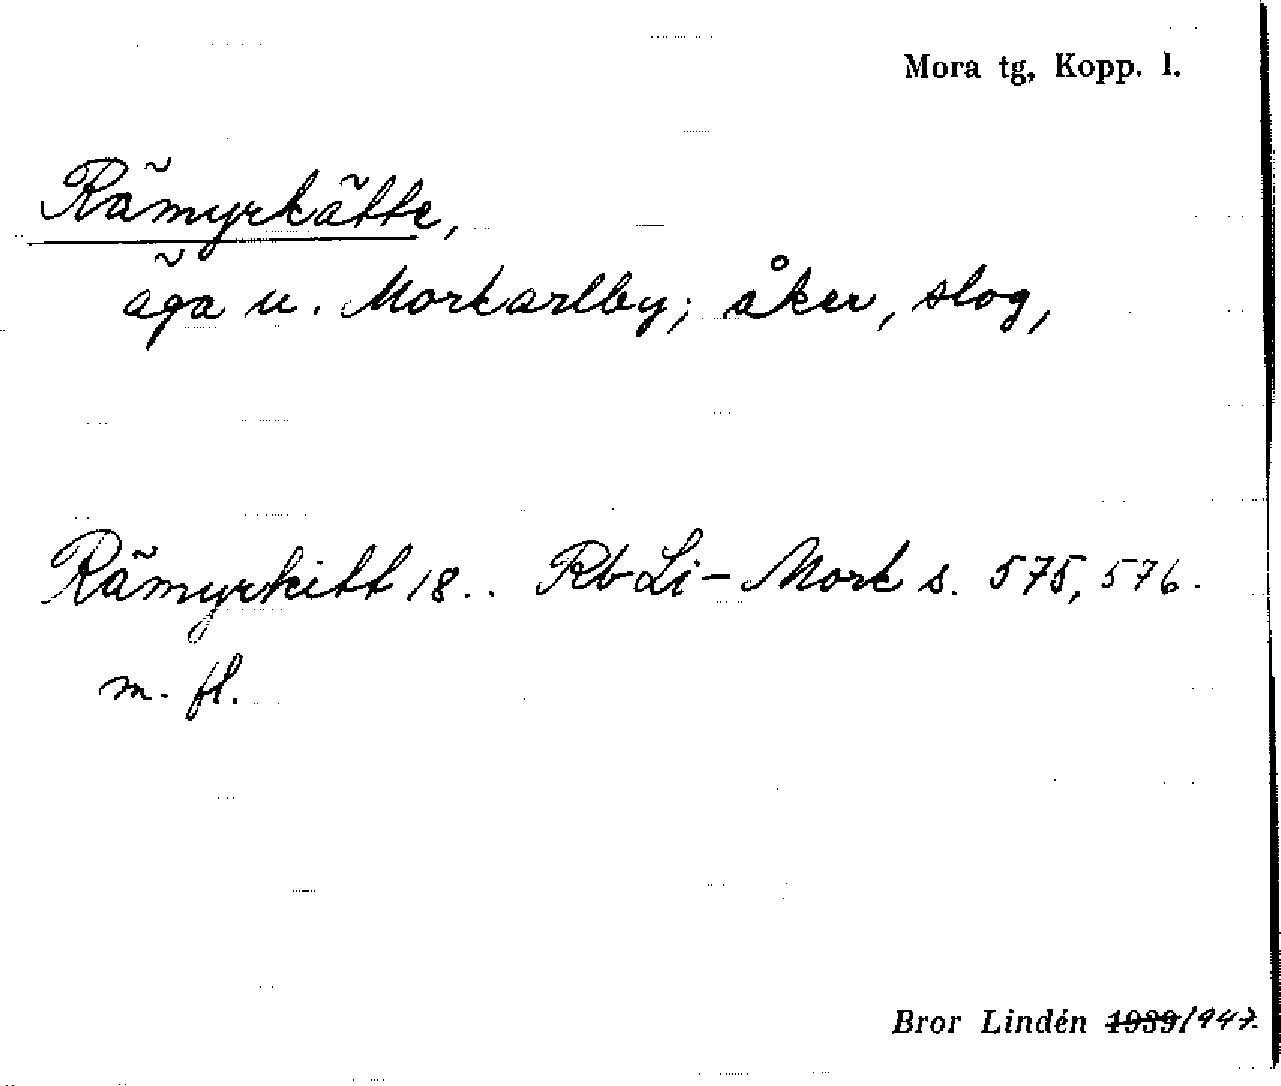 Mora tg, Kopp. l.
Rämyrkätte,
äga u. Morkarlby; åker, slog,
Rämyrkitt 18.. Rb Li - Mork s. 575, 576.
m. fl.
Bror Lindén 1939/947.